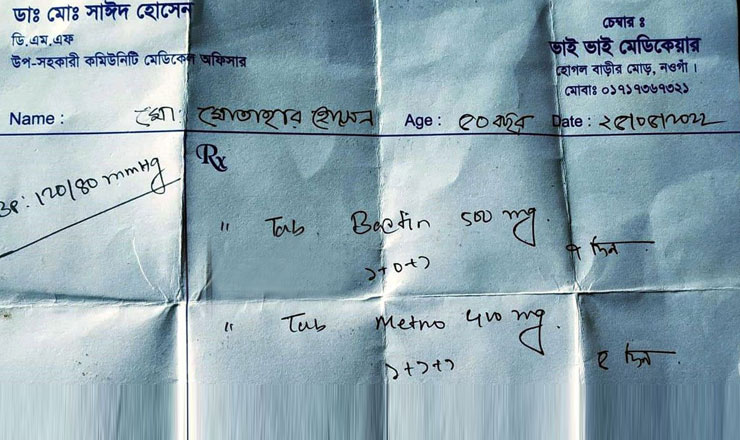 ডাঃ মোঃ সাঈদ হোসেন
ডি.এম.এফ
উপ-সহকারী কমিউনিটি মেডিকেল অফিসার
চেম্বার ঃ
ভাই ভাই মেডিকেয়ার
হোগল বাড়ীর মোড়, নওগাঁ ।
মোবাঃ ০১৭১৭৩৬৭৩২১
Name : মো: মোতাহার হোসেন Age : ৫০ বছর Date :
Rx
BP: 120/80 mmHg
" Tab. Bactin 500 mg.
১+০+১ ৭ দিন
" Tab Metro 400 mg.
১+১+১ দিন